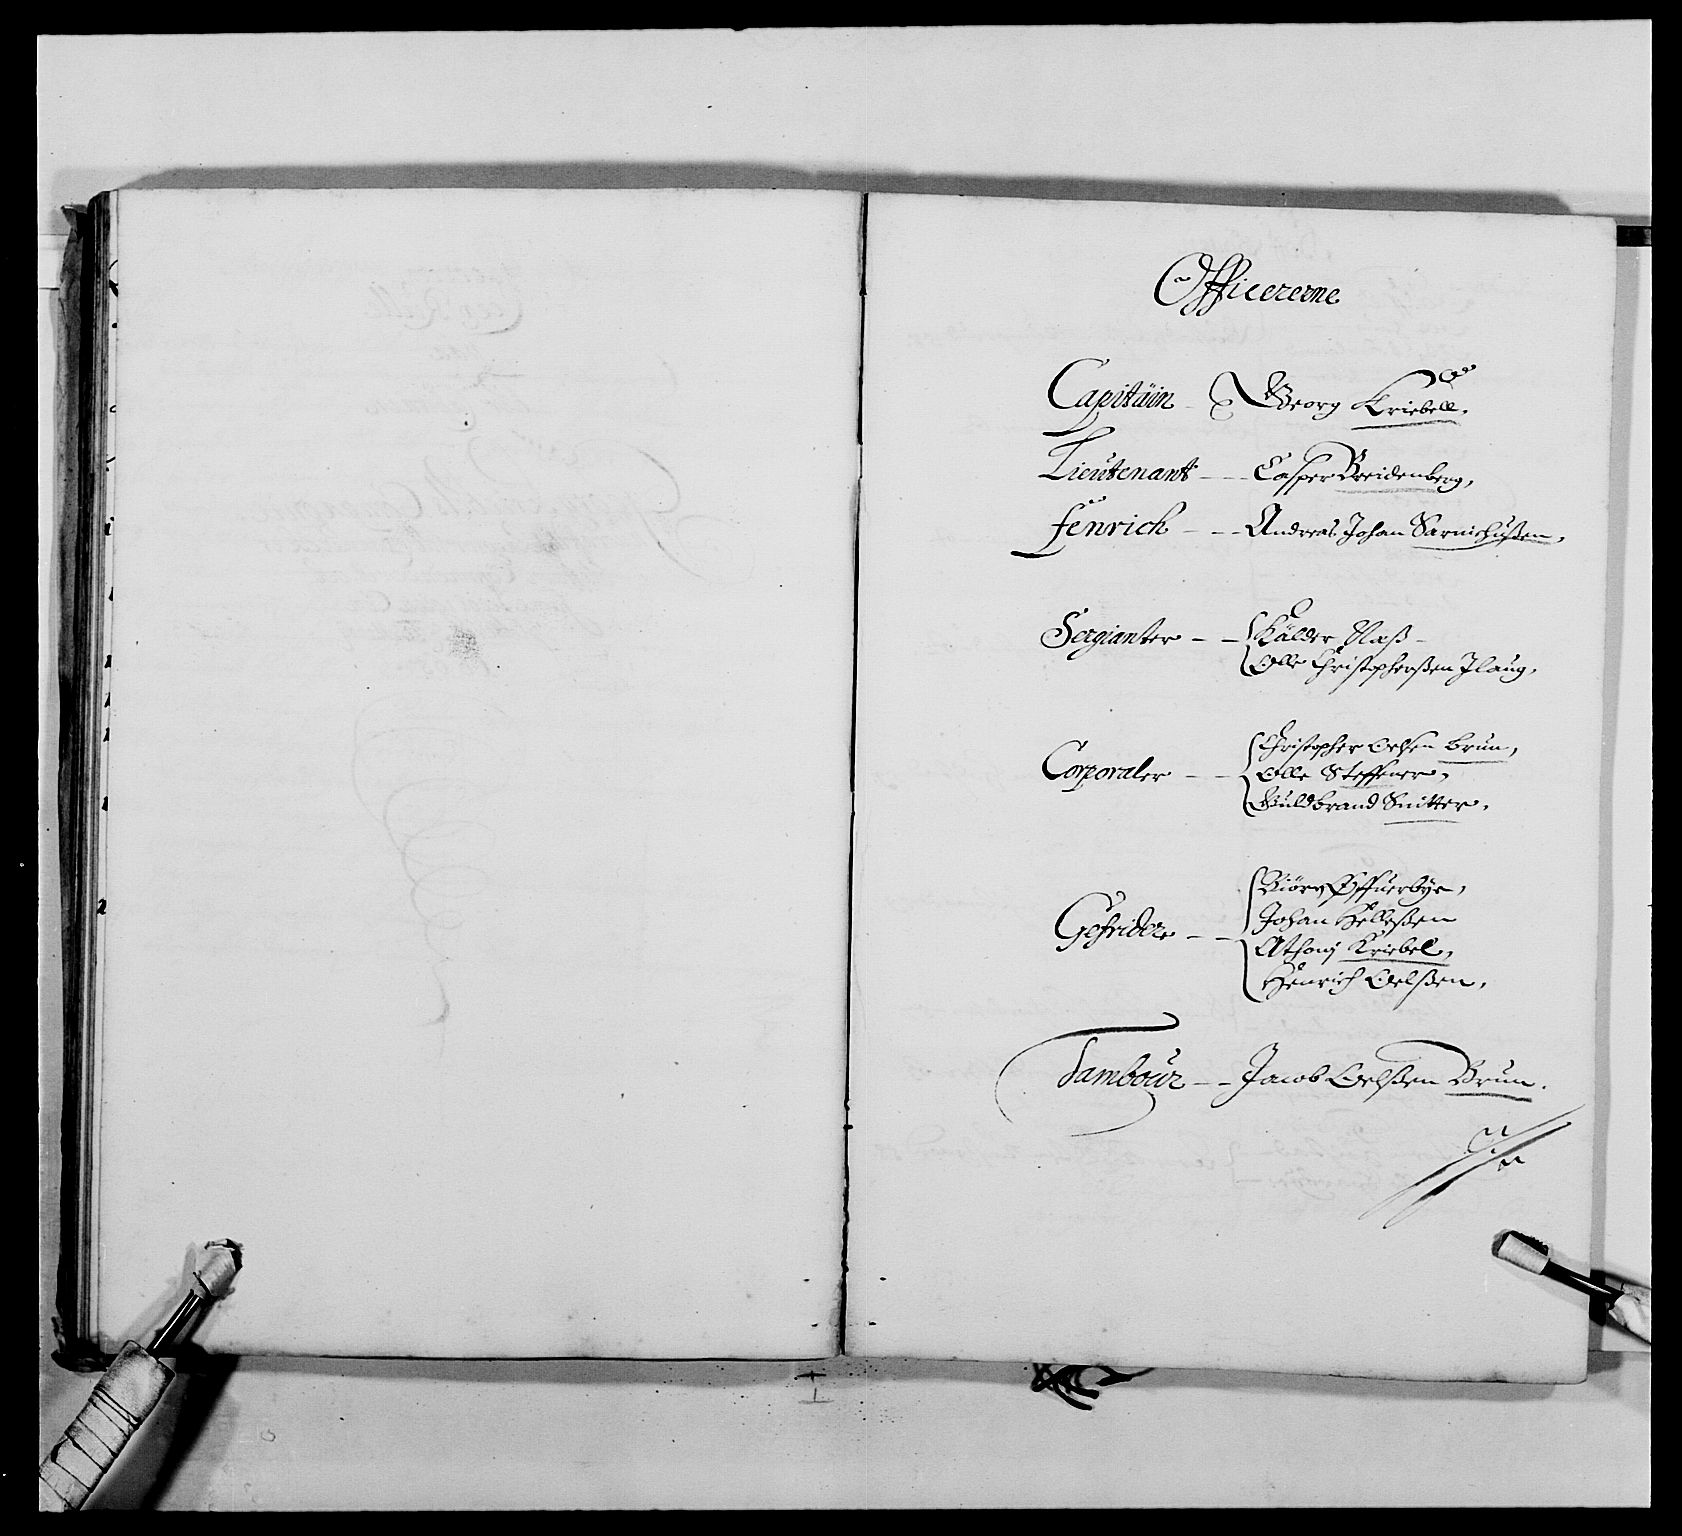 Officererne
Capitäin - Georg Kriebell.
Lieutenant - - Casper Breidenberg,
Fenrich - - Andreas Johan Sarnichußen,
Sergianter - - Kälder Naß -
Olle Christopherßen Ilaug,
Corporaler - - Christopher Oelsen Brun,
Olle Steffener,
Guldbrand Snitter,
Gefrider - - Biörn Öffuerbye,
Johan Helleßen
Athoni Kriebel,
Henrich Oelßen,
Tambour - - Jacob Oelßen Brun.